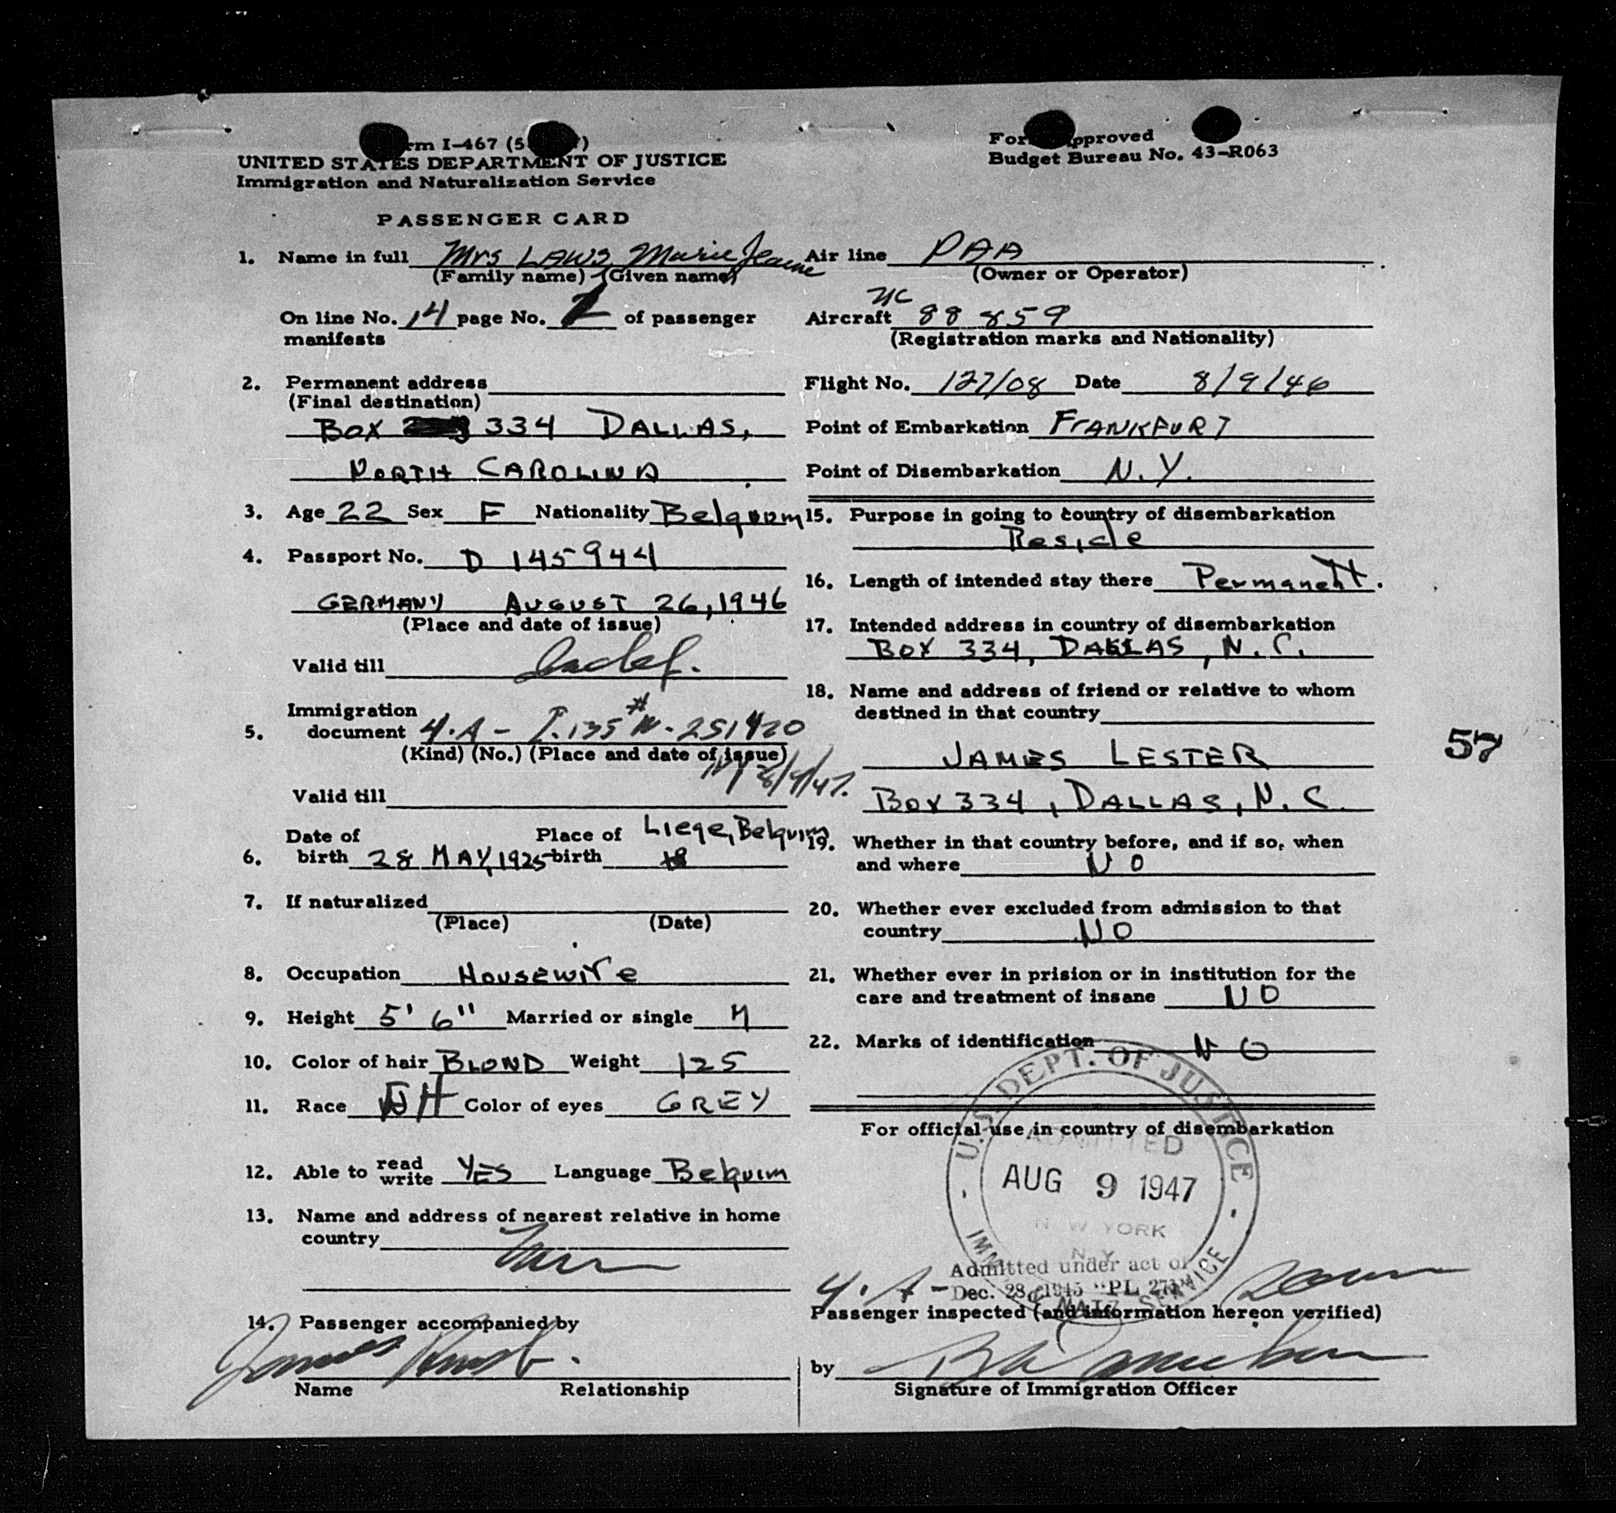 rm I-467 (5
UNITED STATES DEPARTMENT OF JUSTICE
Immigration and Naturalization Service
Approved
Budget Bureau No. 43-R063
PASSENGER CARD
1. Name in full Mrs LAWS Marie Jeanne
(Family name) (Given name)
On line No. 14 page No. 2 of passenger
manifests
2. Permanent address
(Final destination)
Box 334 DALLAS,
NORTH CAROLINA
3. Age 22 Sex F Nationality Belguum
4. Passport No. D 145944
GERMANY AUGUST 26, 1946
(Place and date of issue)
Valid till Indef.
5. Immigration
document 4.A - I.135 # N-251420
(Kind) (No.) (Place and date of issue)
NY 8/9/47.
Valid till
6. Date of birth 28 MAY, 1925 Place of birth Liege, Belguim
7. If naturalized
(Place) (Date)
8. Occupation Housewife
9. Height 5' 6" Married or single M
10. Color of hair BLOND Weight 125
11. Race WH Color of eyes GREY
12. Able to read write YES Language Belguim
13. Name and address of nearest relative in home
country
14. Passenger accompanied by
James
Name Relationship
Air line PAA
(Owner or Operator)
Aircraft NC 88859
(Registration marks and Nationality)
Flight No. 127/08 Date 8/9/46
Point of Embarkation FRANKFURT
Point of Disembarkation N.Y.
15. Purpose in going to country of disembarkation
Reside
16. Length of intended stay there Permanent.
17. Intended address in country of disembarkation
BOX 334, DALLAS, N.C.
18. Name and address of friend or relative to whom
destined in that country
JAMES LESTER
BOX 334, DALLAS, N.C.
57
19. Whether in that country before, and if so, when
and where NO
20. Whether ever excluded from admission to that
country NO
21. Whether ever in prision or in institution for the
care and treatment of insane NO
22. Marks of identification NO
For official use in country of disembarkation
U.S. DEPT. OF JUSTICE
ADMITTED
AUG 9 1947
NEW YORK
N.Y.
IMM. & NATZ. SERVICE
Admitted under act of
Dec. 28, 1945 "PL 271"
4.A -
Passenger inspected (and information hereon verified)
by
Signature of Immigration Officer